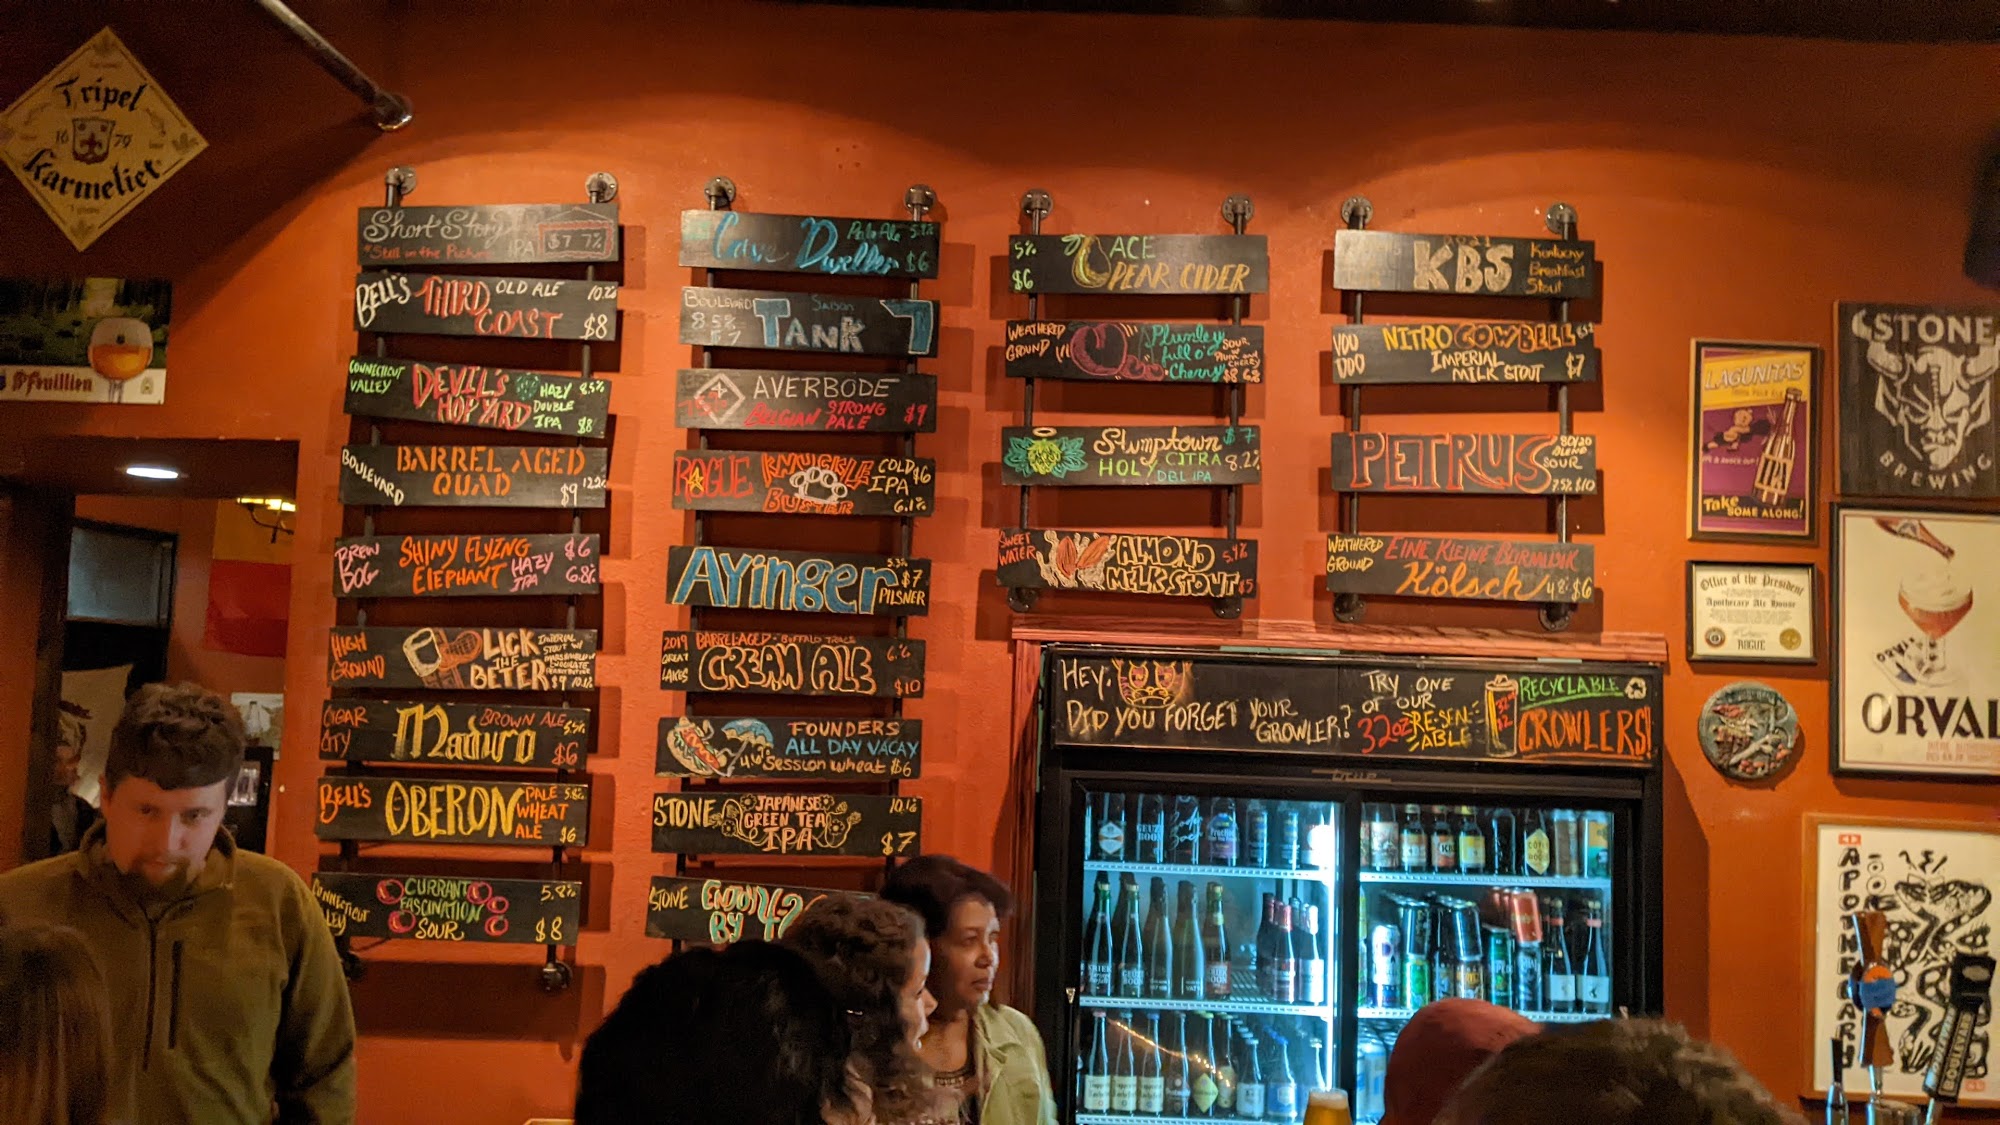 Tripel
16 79
Karmeliet
St Feuillien
Short Story
IPA
$7 7%
*Still in the Picture
BELL'S THIRD COAST
OLD ALE 10.2%
$8
CONNECTICUT VALLEY
DEVIL'S HOP YARD
HAZY DOUBLE IPA
8.5%
$8
BOULEVARD
BARREL AGED QUAD
$9
BREW BOG
SHINY FLYING ELEPHANT
HAZY IPA
$6
6.8%
HIGH GROUND
LICK THE BETER
IMPERIAL STOUT W/
$9 10.1%
CIGAR CITY
Maduro
BROWN ALE 5.5%
$6
BELL'S
OBERON
PALE WHEAT ALE
5.8%
$6
CONNECTICUT VALLEY
CURRANT FASCINATION SOUR
5.8%
$8
Cave Dweller
Pale Ale
$6
BOULEVARD
8.5%
TANK 7
SAISON
AVERBODE
BELGIAN STRONG PALE
$9
ROGUE
KNUCKLE BUSTER
COLD IPA
$6
6.1%
Ayinger
$7
PILSNER
2019 GREAT LAKES
BARREL-AGED - BUFFALO TRACE
CREAM ALE
6.6%
$10
FOUNDERS
ALL DAY VACAY
4.6% Session wheat $6
STONE
JAPANESE GREEN TEA IPA
10.1%
$7
STONE
ENJOY BY
5%
$6
ACE
PEAR CIDER
WEATHERED GROUND
Plumley full o' Cherry
SOUR w/ PLUM and CHERRY
$8
Stumptown $7
HOLY CITRA 8.2%
DBL IPA
SWEET WATER
ALMOND MILK STOUT
5.4%
$5
KBS
Kentucky Breakfast Stout
VOODOO
NITRO COWBELL
IMPERIAL MILK STOUT
$7
PETRUS
80/20 BLEND
SOUR
7.5% $10
WEATHERED GROUND
EINE KLEINE BIERMUSIK
Kölsch
4.8% $6
HEY,
DID YOU FORGET YOUR GROWLER?
TRY ONE OF OUR 32oz RE-SEAL-ABLE
32
RECYCLABLE
CROWLERS!
LAGUNITAS
Take SOME ALONG!
STONE
BREWING
Office of the President
Apothecary Ale House
ROGUE
ORVAL
APOTHECARY
BOULEVARD